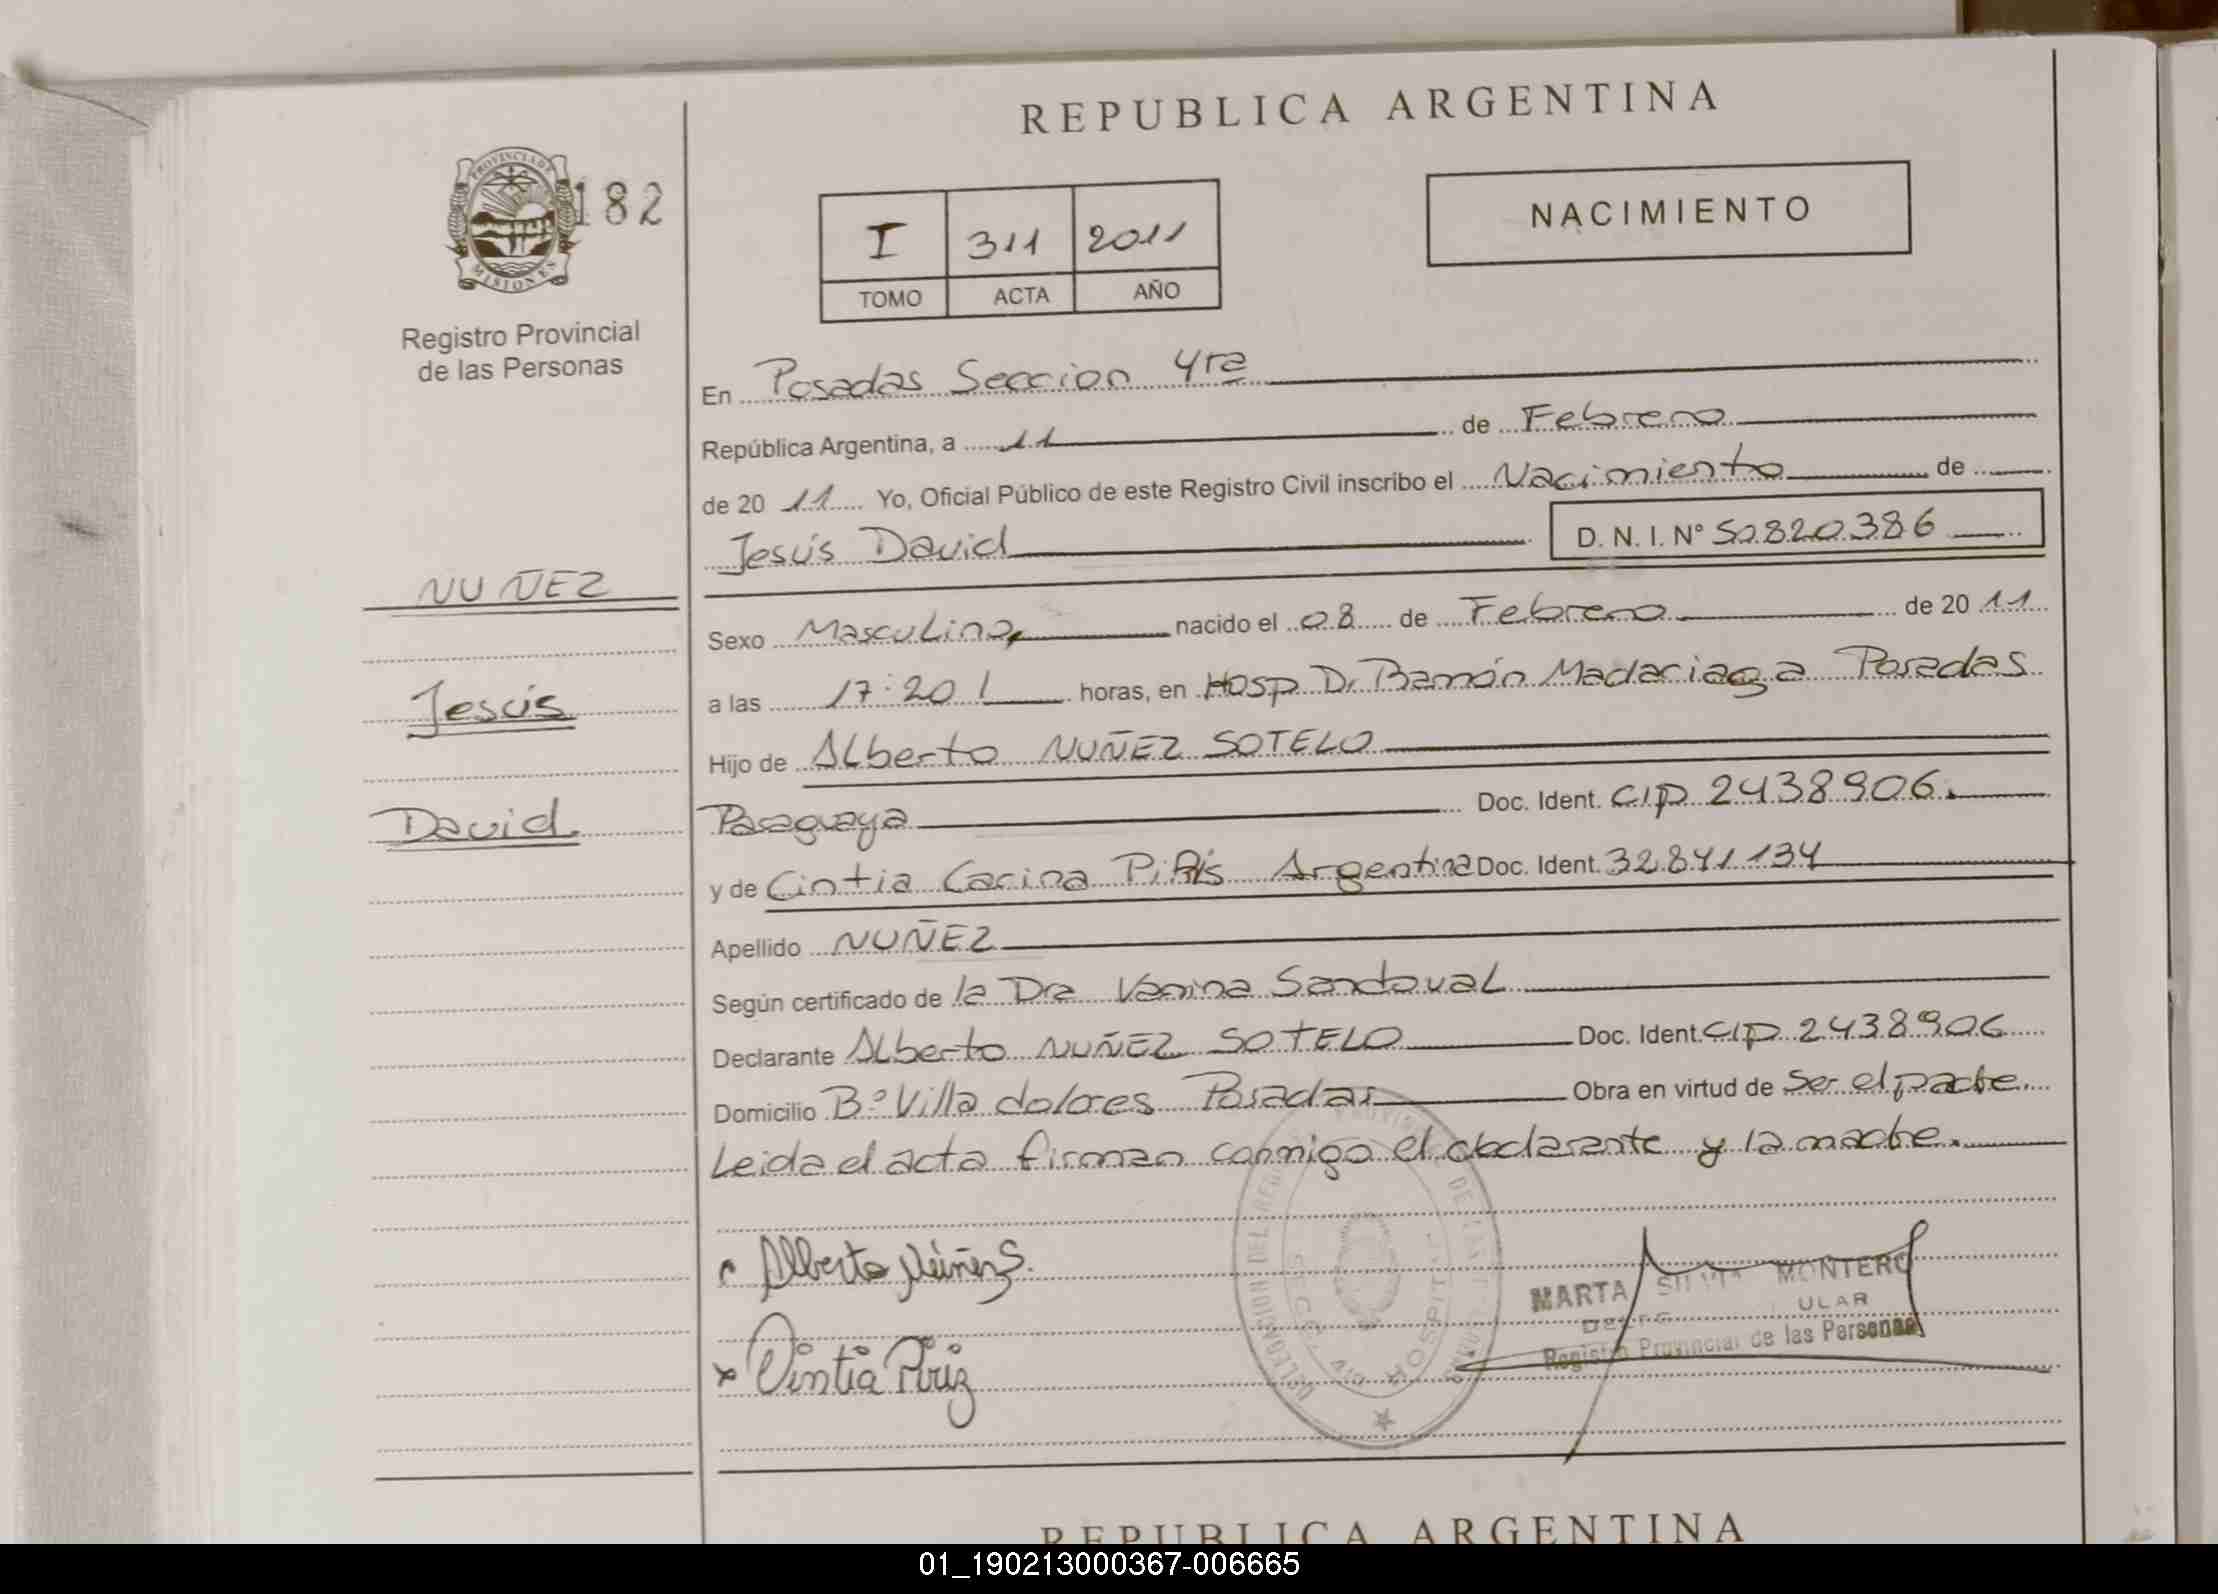 REPUBLICA ARGENTINA
PROVINCIA DE
MISIONES
182
Registro Provincial
de las Personas
I 311 2011
TOMO ACTA AÑO
NACIMIENTO
En Posadas Seccion 4ra
República Argentina, a 11 de Febrero
de 20 11 Yo, Oficial Público de este Registro Civil inscribo el Nacimiento de
Jesús David D. N. I. Nº 50.820.386
NUÑEZ
Jesús
David
Sexo Masculino, nacido el 08 de Febrero de 20 11
a las 17:20 horas, en Hosp Dr Ramón Madariaga Posadas
Hijo de Alberto NUÑEZ SOTELO
Paraguaya Doc. Ident. CIP 2438906.
y de Cintia Carina Argentina Doc. Ident. 32.841.134
Apellido NUÑEZ
Según certificado de la Dra Vanina Sandoval
Declarante Alberto NUÑEZ SOTELO Doc. Ident. CIP 2438906
Domicilio Bº Villa dolores Posadas Obra en virtud de ser el padre.
Leida el acta firman conmigo el declarante y la madre.
Alberto Núñez S.
Cintia Piriz
MARTA SILVIA MONTERO
Registro Provincial de las Personas
REPUBLICA ARGENTINA
01_190213000367-006665